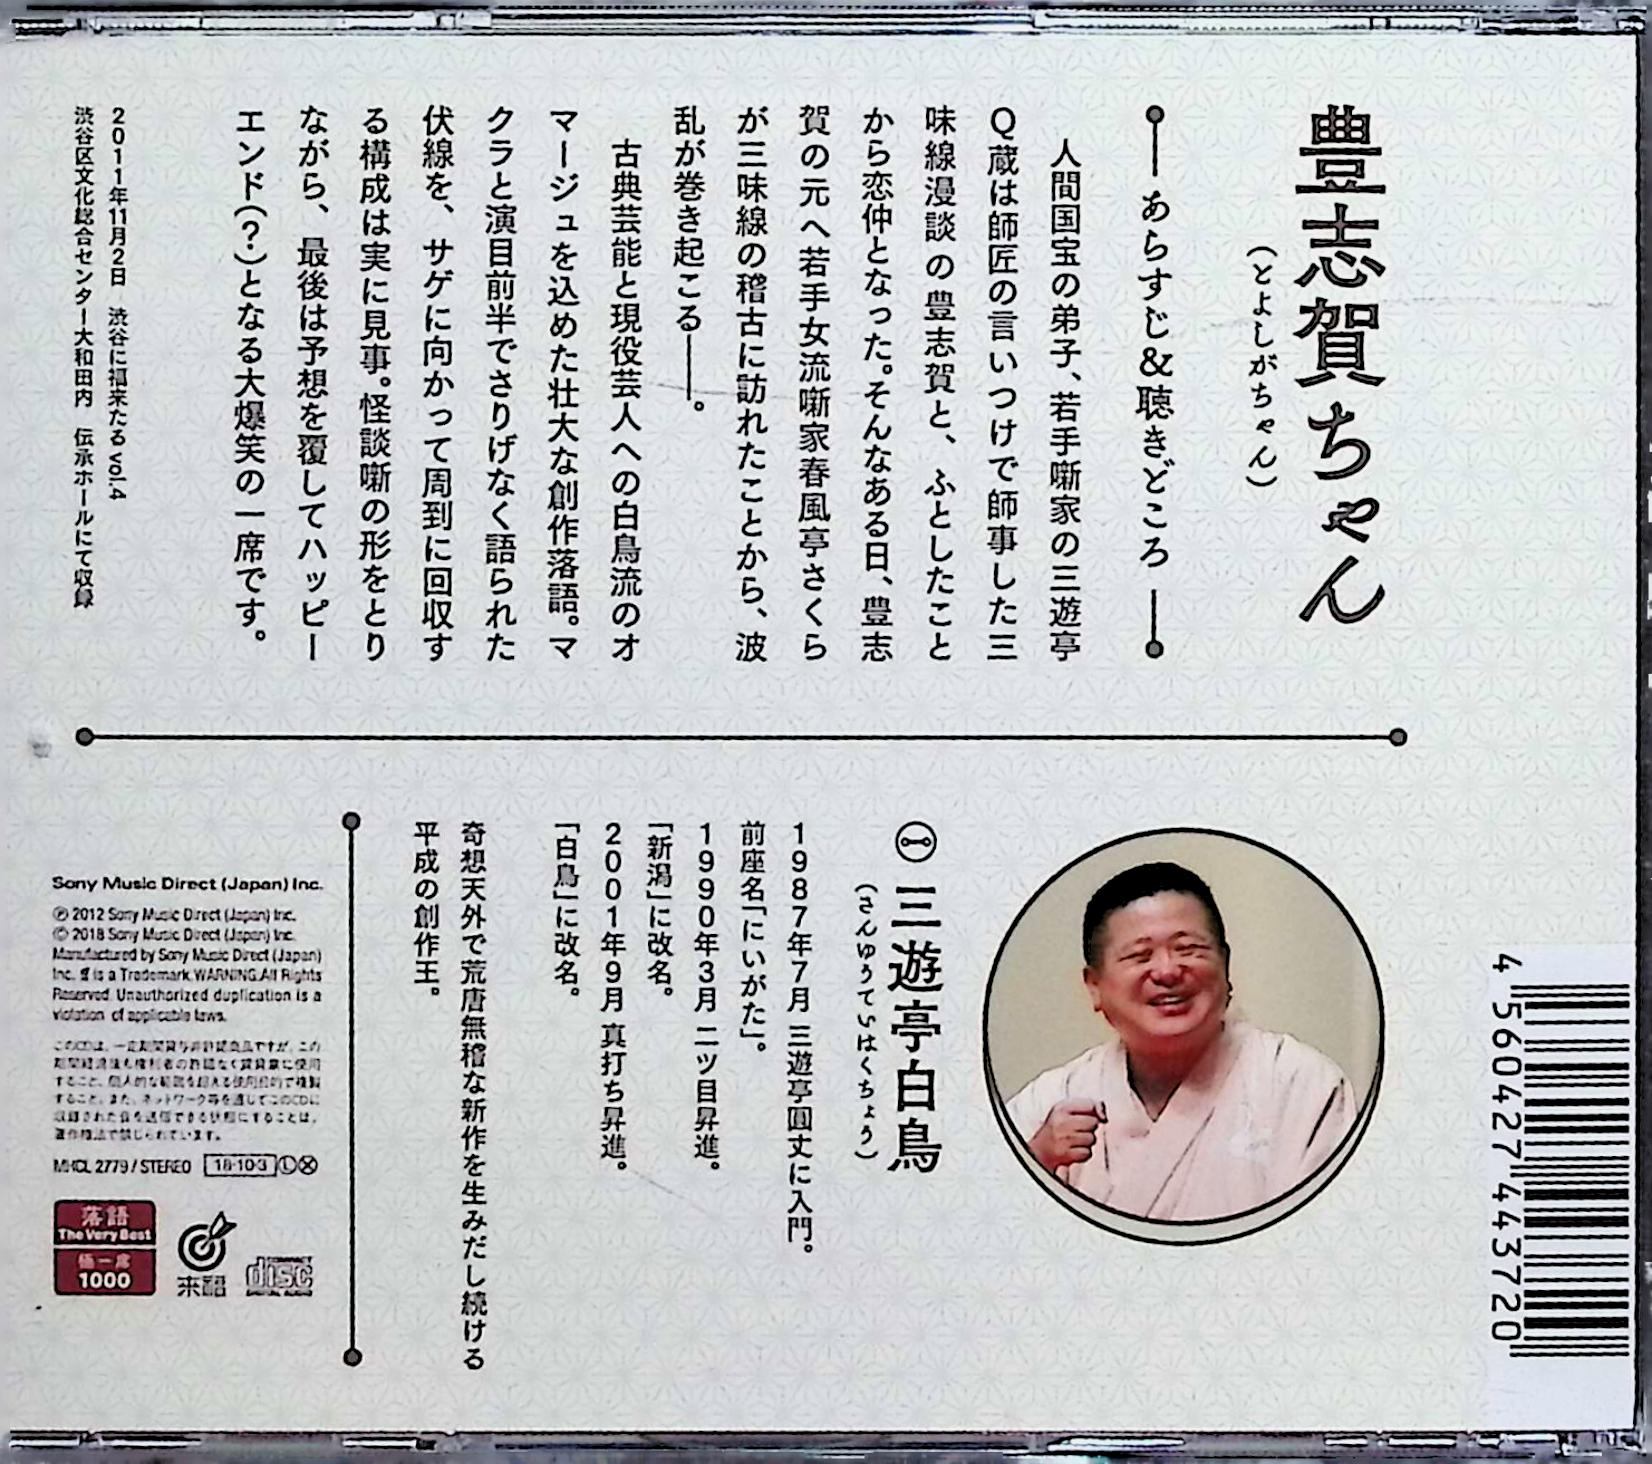 豊志賀ちゃん
(とよしがちゃん)
あらすじ&聴きどころ
人間国宝の弟子、若手噺家の三遊亭
Q蔵は師匠の言いつけで師事した三
味線漫談の豊志賀と、ふとしたこと
から恋仲となった。そんなある日、豊志
賀の元へ若手女流噺家春風亭さくら
が三味線の稽古に訪れたことから、波
乱が巻き起こる――。
古典芸能と現役芸人への白鳥流のオ
マージュを込めた壮大な創作落語。マ
クラと演目前半でさりげなく語られた
伏線を、サゲに向かって周到に回収す
る構成は実に見事。怪談噺の形をとり
ながら、最後は予想を覆してハッピー
エンド(?)となる大爆笑の一席です。
2011年11月2日 渋谷に福来たる vol.4
渋谷区文化総合センター大和田内 伝承ホールにて収録
三遊亭白鳥
(さんゆうていはくちょう)
1987年7月 三遊亭圓丈に入門。
前座名「にいがた」。
1990年3月 二ツ目昇進。
「新潟」に改名。
2001年9月 真打ち昇進。
「白鳥」に改名。
奇想天外で荒唐無稽な新作を生みだし続ける
平成の創作王。
Sony Music Direct (Japan) Inc.
Ⓟ 2012 Sony Music Direct (Japan) Inc.
© 2018 Sony Music Direct (Japan) Inc.
Manufactured by Sony Music Direct (Japan)
Inc. is a Trademark. WARNING: All Rights
Reserved. Unauthorized duplication is a
violation of applicable laws.
このCDは、一定期間貸与非許諾商品ですが、この
期間経過後も権利者の許諾なく賃貸業に使用
すること、個人的な範囲を超える使用目的で複製
すること、また、ネットワーク等を通じてこのCDに
収録された音を送信できる状態にすることは、
著作権法で禁じられています。
MHCL 2779 / STEREO 18・10・3 Ⓛ Ⓧ
落語
The Very Best
極一席
1000
来福
disc
4 560427 443720